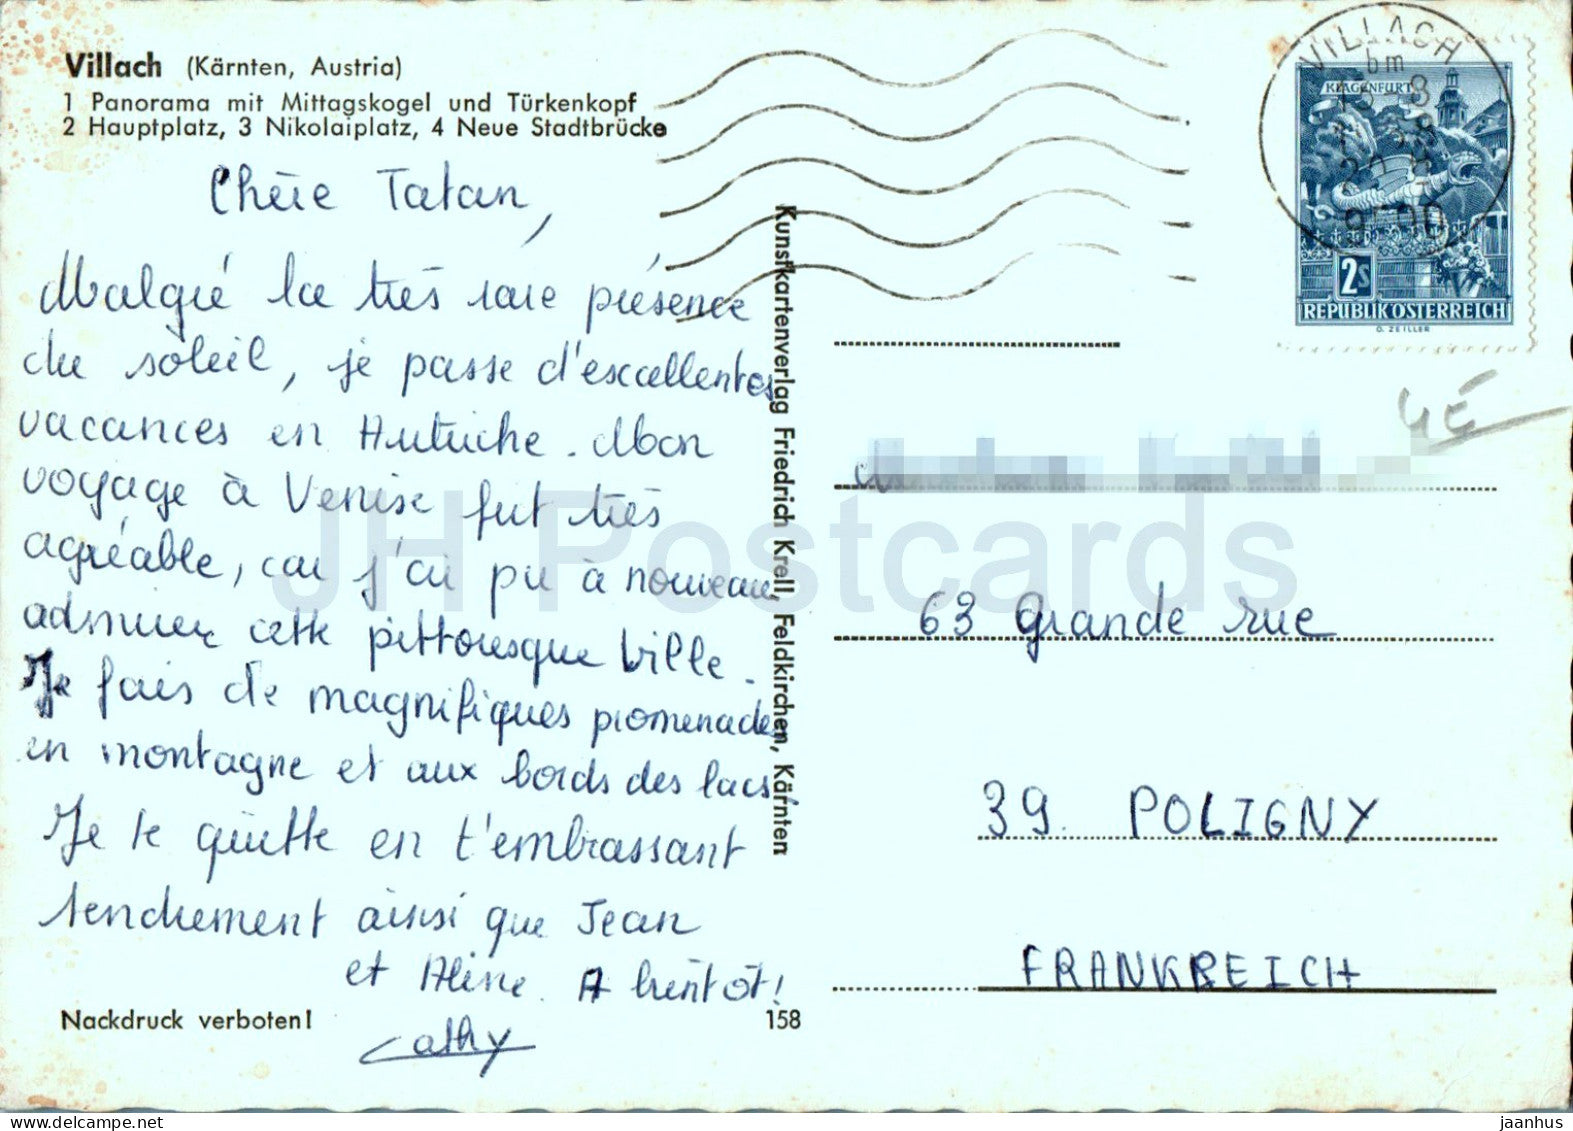 Villach (Kärnten, Austria)
1 Panorama mit Mittagskogel und Türkenkopf
2 Hauptplatz, 3 Nikolaiplatz, 4 Neue Stadtbrücke
Chère Tatan,
Malgré la très rare présence
du soleil, je passe d'excellentes
vacances en Autriche. Mon
voyage à Venise fut très
agréable, car j'ai pu à nouveau
admirer cette pittoresque ville.
Je fais de magnifiques promenades
en montagne et aux bords des lacs.
Je te quitte en t'embrassant
tendrement ainsi que Jean
et Aline. A bientôt!
Cathy
Nackdruck verboten!
158
Kunstkartenverlag Friedrich Krell, Feldkirchen, Kärnten
VILLACH
KLAGENFURT
2S
REPUBLIK ÖSTERREICH
O. ZEILLER
4É
63 grande rue
39. POLIGNY
FRANKREICH
JH Postcards
jaanhus